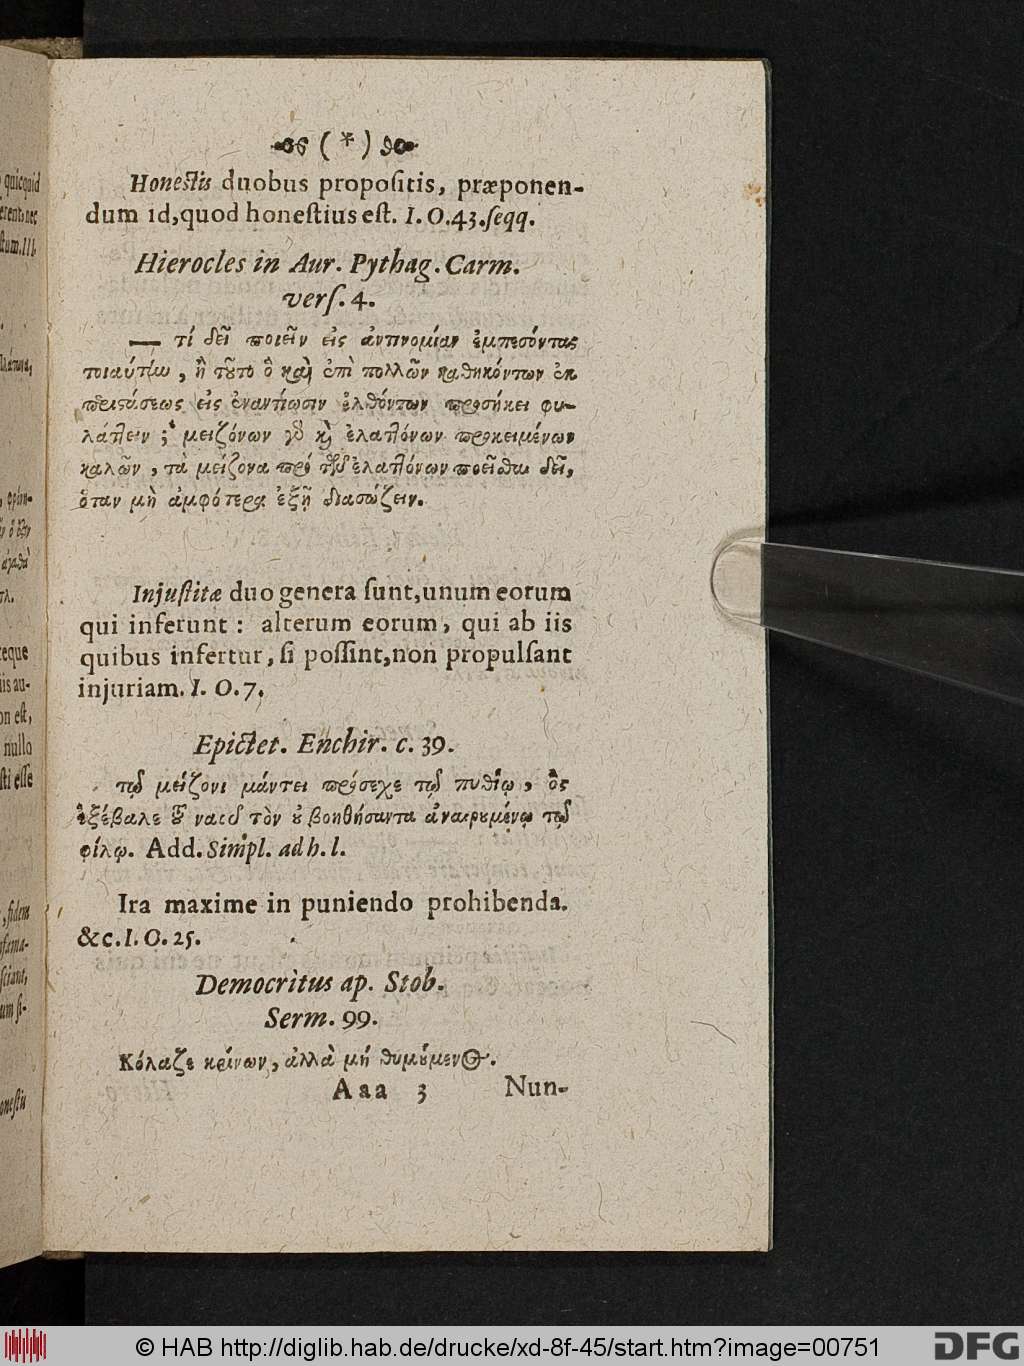 ( * )
Honestis duobus propositis, præponen-
dum id, quod honestius est. I. O. 43. seqq.
Hierocles in Aur. Pythag. Carm.
vers. 4.
— τί δεῖ ποιεῖν εἰς ἀντινομίαν ἐμπεσόντας
τοιαύτην, ἢ τοῦτο ὃ καὶ ἐπὶ πολλῶν καθηκόντων ἐκ
περιστάσεως εἰς ἐναντίωσιν ἐλθόντων προσήκει φυ-
λάττειν; μειζόνων γὰρ καὶ ἐλαττόνων προκειμένων
καλῶν, τὰ μείζονα πρὸ τῶν ἐλαττόνων ποιεῖσθαι δεῖ,
ὅταν μὴ ἀμφότερα ἐξῇ διασώζειν.
Injustitæ duo genera sunt, unum eorum
qui inferunt: alterum eorum, qui ab iis
quibus infertur, si possint, non propulsant
injuriam. I. O. 7.
Epictet. Enchir. c. 39.
τῷ μείζονι μάντει πρόσεχε τῷ πυθίῳ, ὃς
ἐξέβαλε τοῦ ναοῦ τὸν οὐ βοηθήσαντα ἀναιρουμένῳ τῷ
φίλῳ. Add. Simpl. ad h. l.
Ira maxime in puniendo prohibenda.
&c. I. O. 25.
Democritus ap. Stob.
Serm. 99.
Κόλαζε κρίνων, ἀλλὰ μή θυμούμενος.
Aaa 3 Nun-
© HAB http://diglib.hab.de/drucke/xd-8f-45/start.htm?image=00751
DFG